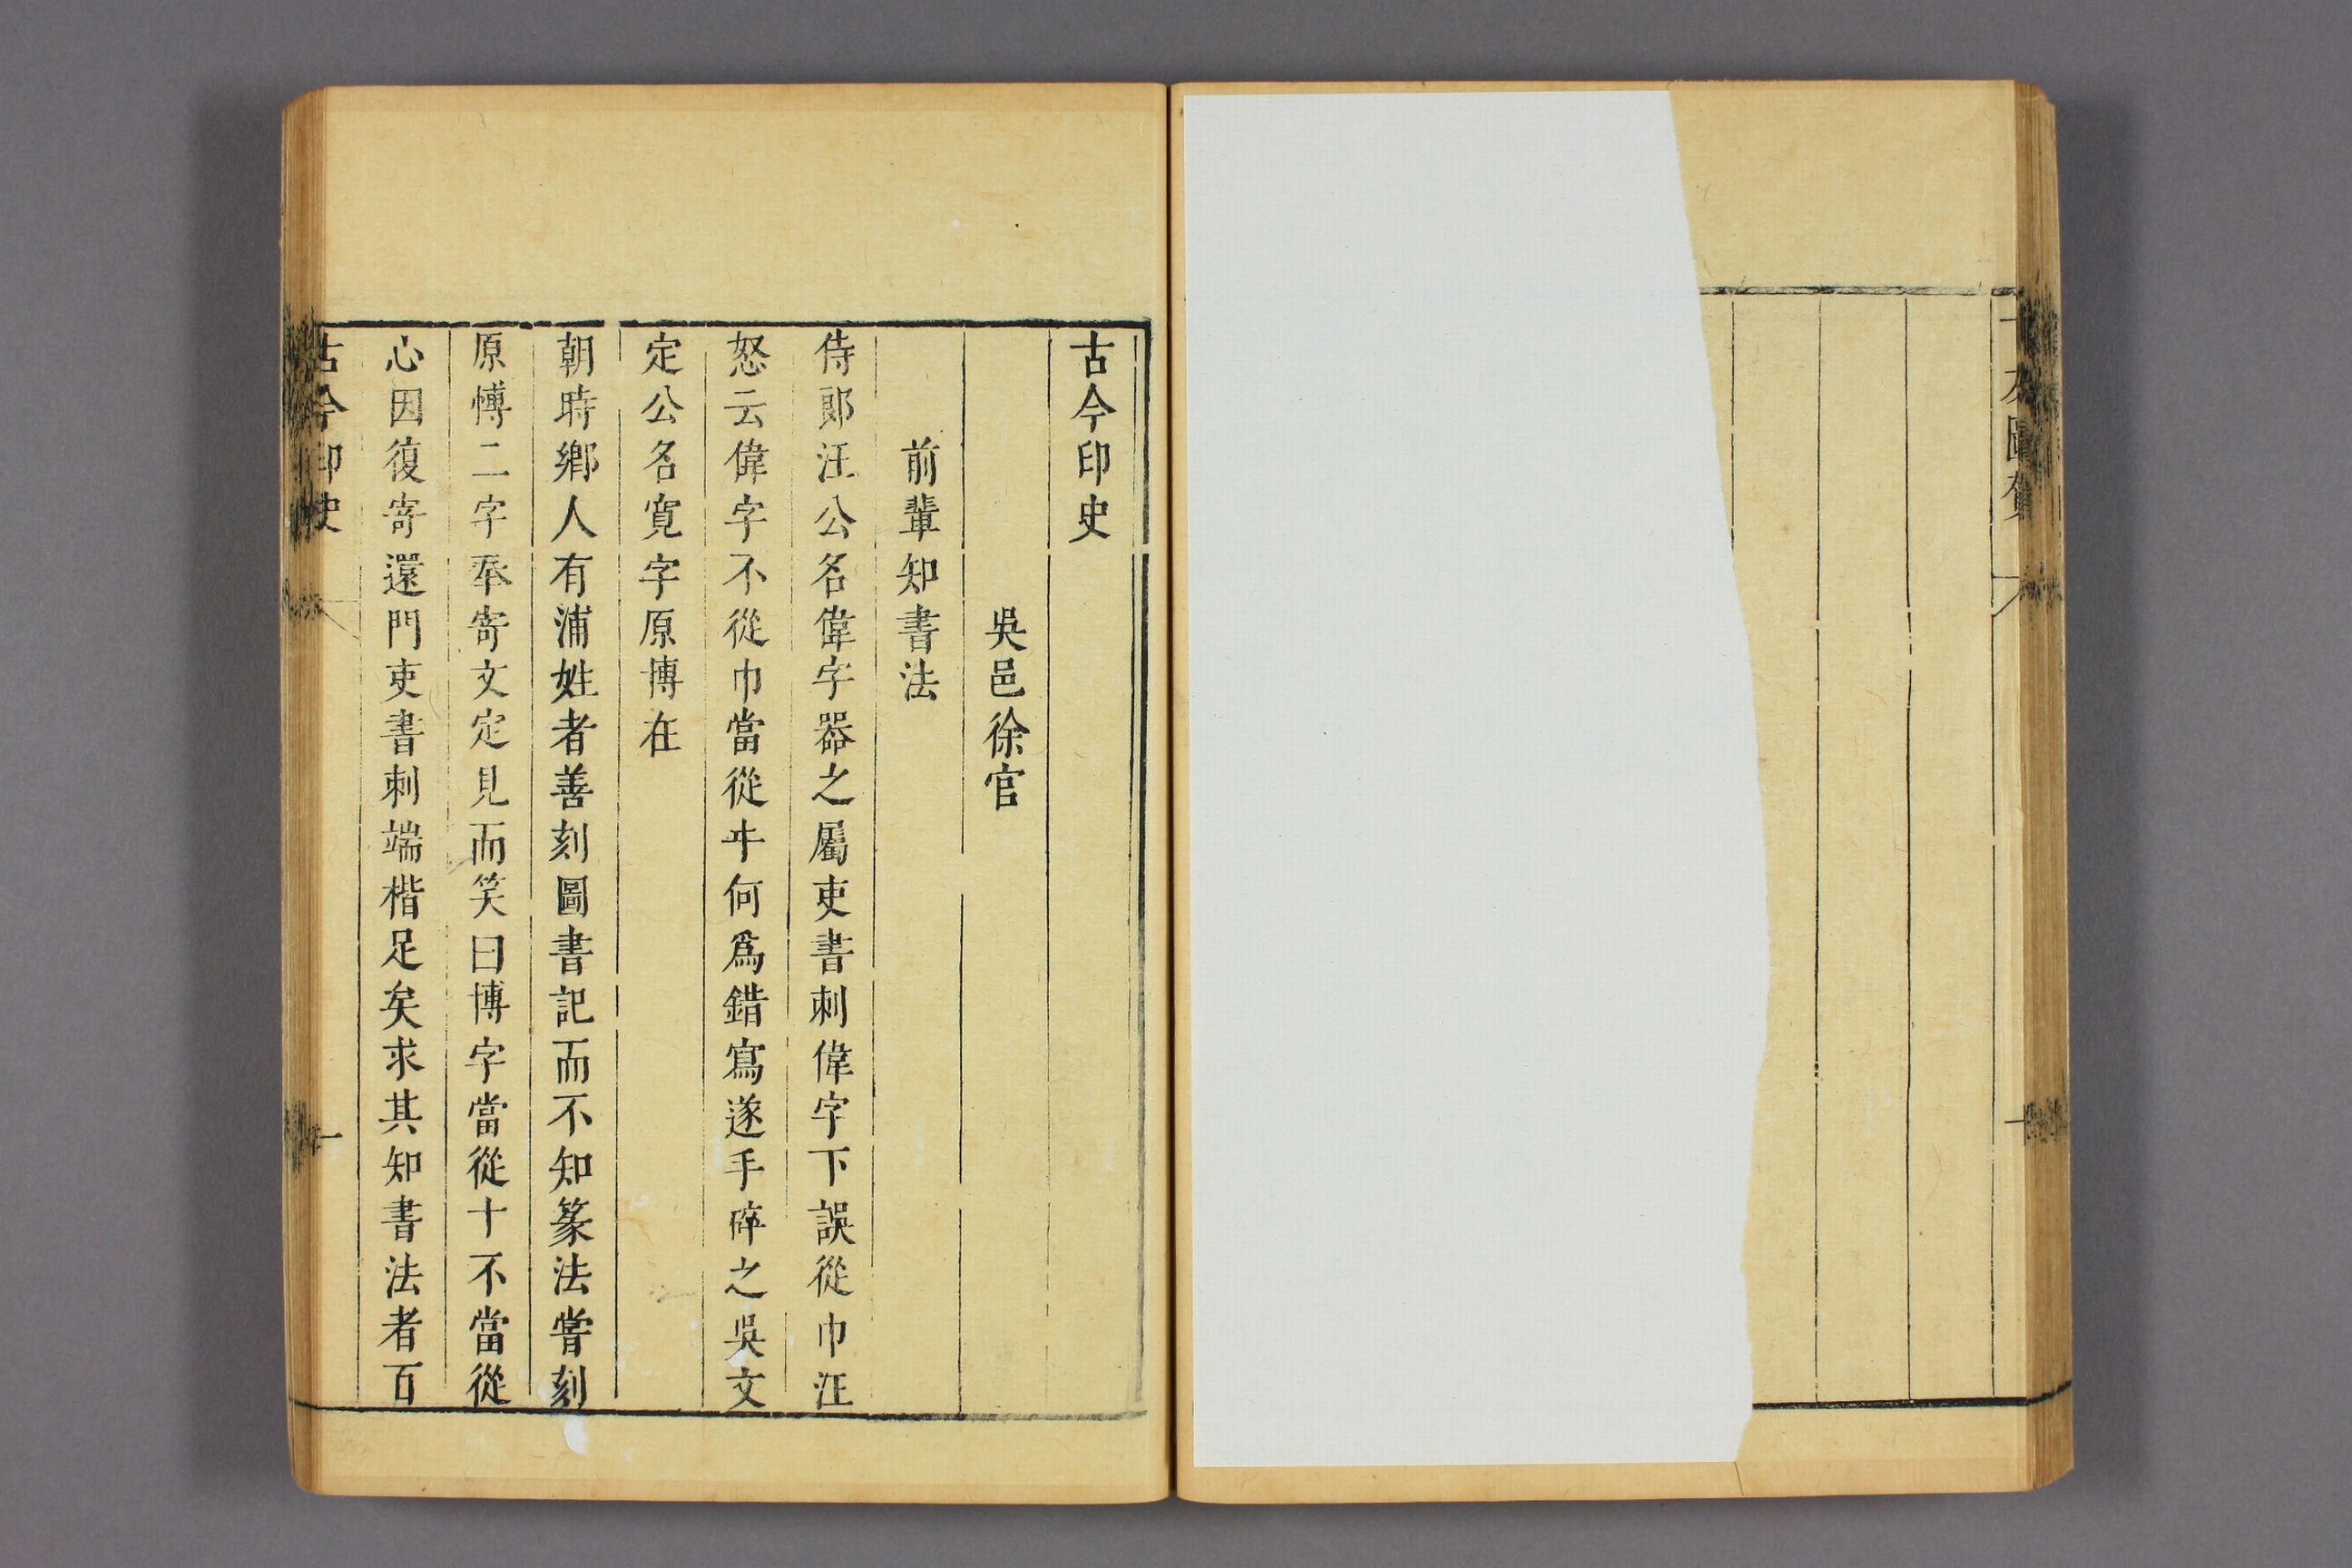 古今印史
吳邑徐官
前輩知書法
侍郎汪公名偉字器之屬吏書刺偉字下誤從巾汪
怒云偉字不從巾當從㐄何爲錯寫遂手碎之吳文
定公名寬字原博在
朝時鄉人有浦姓者善刻圖書記而不知篆法嘗刻
原愽二字奉寄文定見而笑曰博字當從十不當從
心因復寄還門吏書刺端楷足矣求其知書法者百
古今印史
一